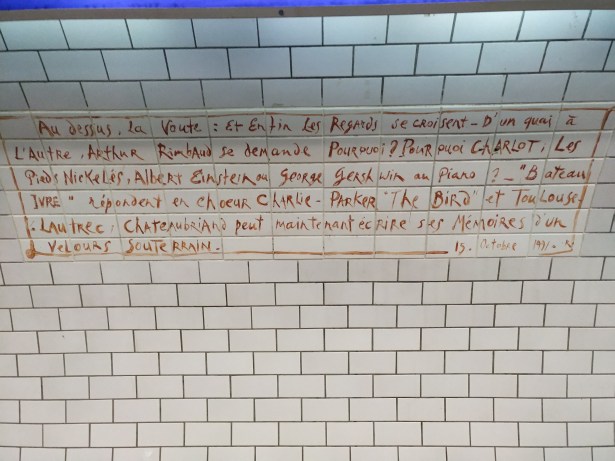 Au dessus, la Voute : Et Enfin Les Regards se croisent - D'un quai à
L'Autre, Arthur Rimbaud se demande Pourquoi ? Pourquoi CHARLOT, Les
Pieds Nickelés, Albert Einstein ou George Gershwin au Piano ? - "Bateau
IVRE" répondent en choeur Charlie - PARKER "The BIRD" et Toulouse
- Lautrec, Chateaubriand peut maintenant écrire ses Mémoires d'un
Velours Souterrain. 15. Octobre 1991.